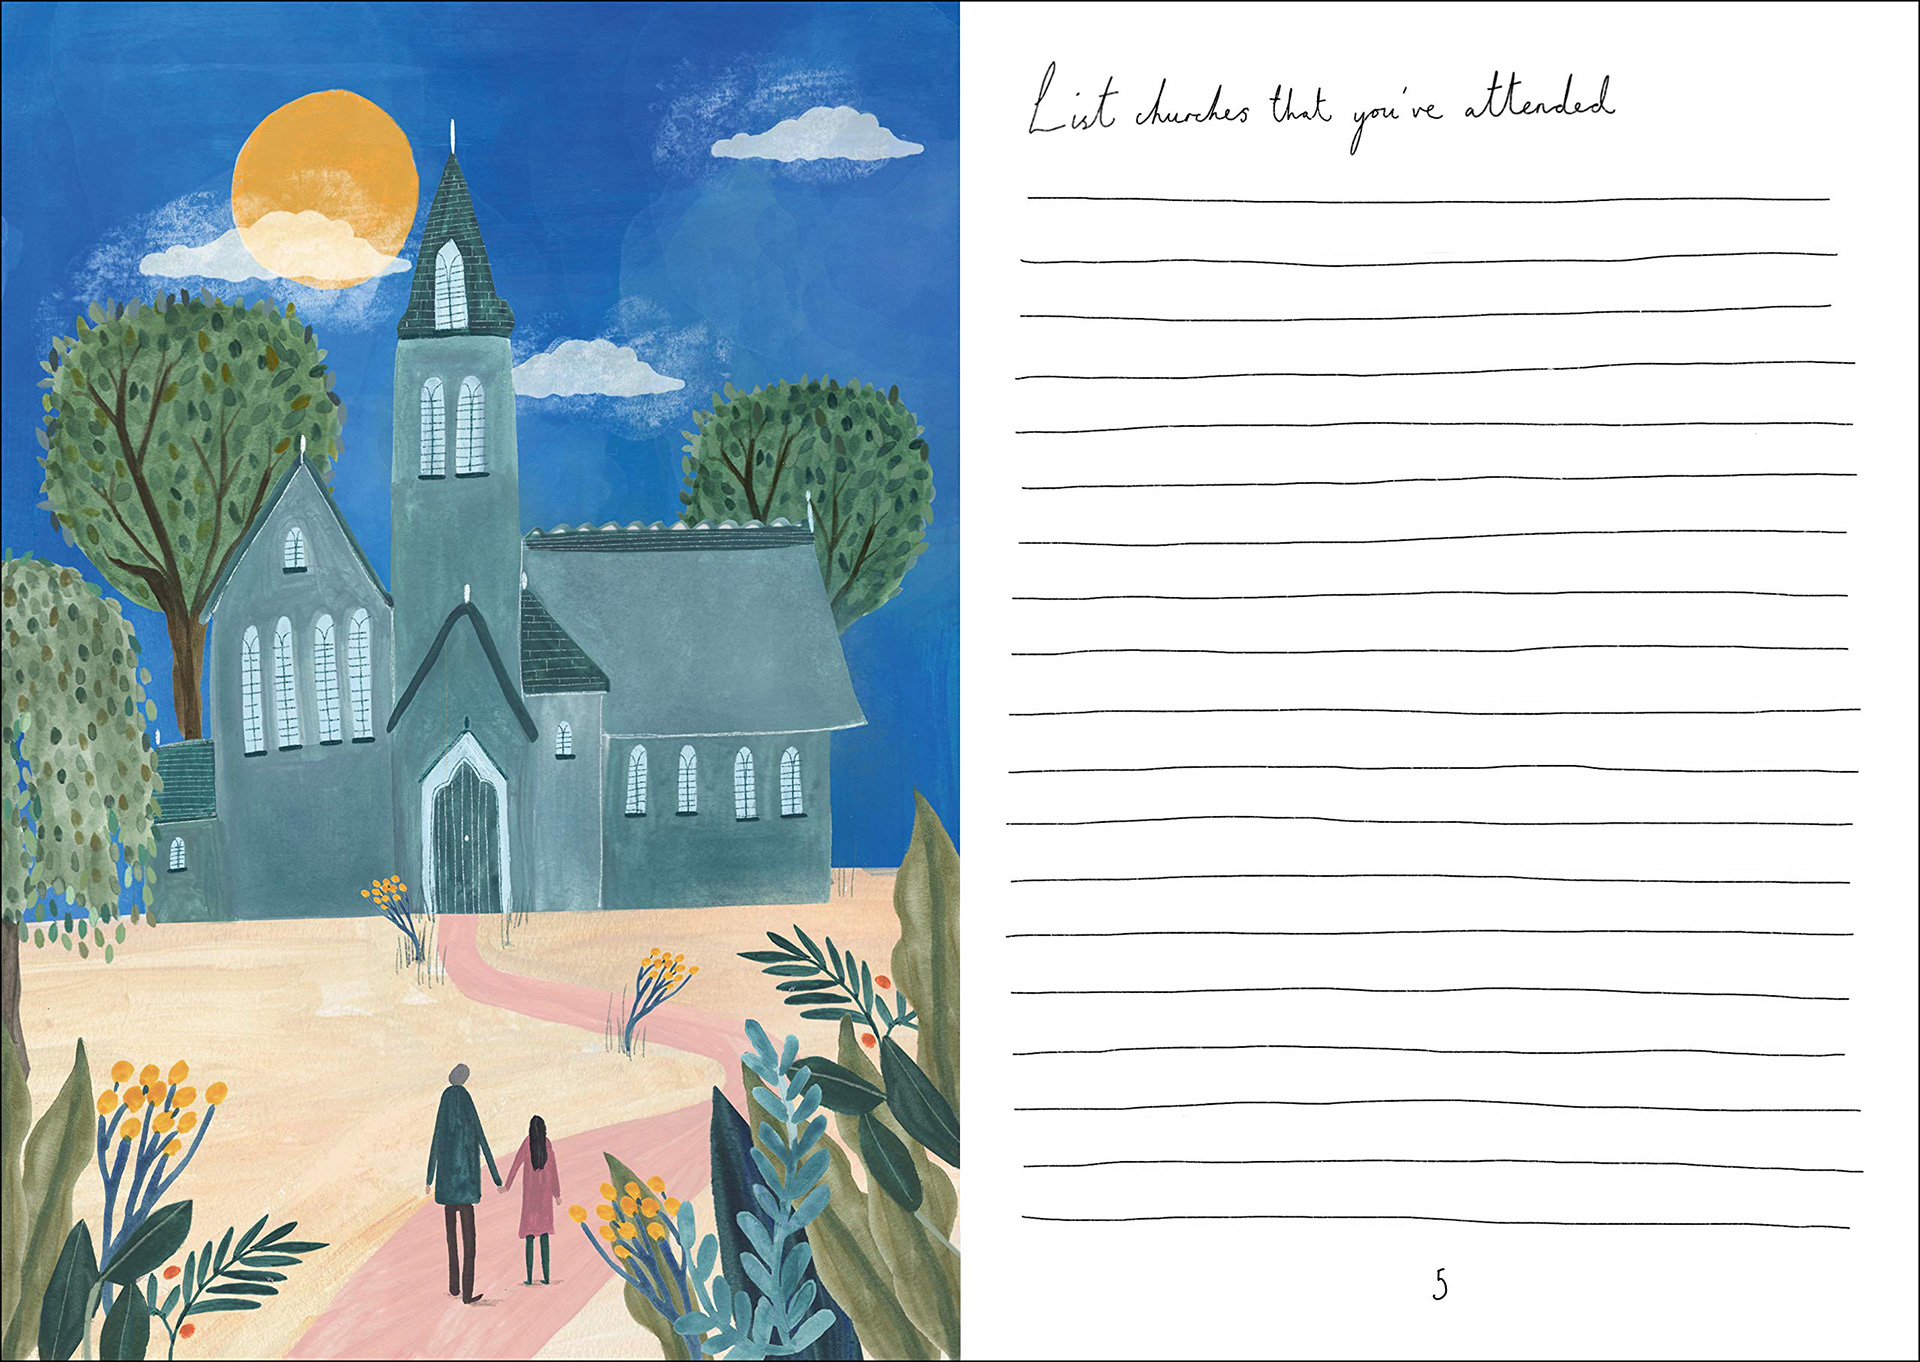 List churches that you've attended
5